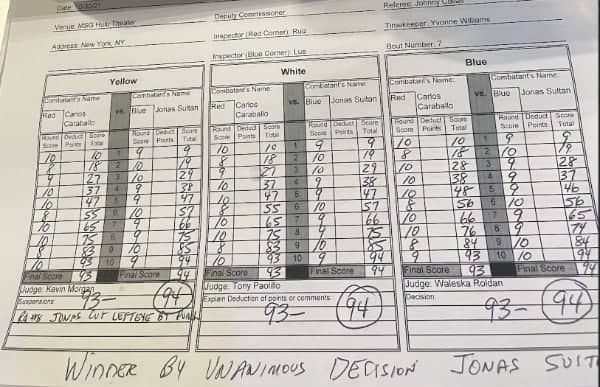 Date: 10/30/21
Venue: MSG Hulu Theater
Address: New York, NY
Deputy Commissioner
Inspector (Red Corner): Ruiz
Inspector (Blue Corner): Lue
Referee: Johnny
Timekeeper: Yvonne Williams
Bout Number: 7
Yellow
Combatant's Name Combatant's Name
Red Carlos Caraballo vs. Blue Jonas Sultan
Round Score Deduct Points Score Total Round Score Deduct Points Score Total
10 10 1 9 9
8 18 2 10 19
9 27 3 10 29
10 37 4 9 38
10 47 5 9 47
8 55 6 10 57
10 65 7 9 66
10 75 8 9 75
8 83 9 10 85
10 93 10 9 94
Final Score 93 Final Score 94
Judge: Kevin Morgan
Suspensions
93- 94
JONAS CUT LEFT EYE BY
White
Combatant's Name Combatant's Name
Red Carlos Caraballo vs. Blue Jonas Sultan
Round Score Deduct Points Score Total Round Score Deduct Points Score Total
10 10 1 9 9
8 18 2 10 19
9 27 3 10 29
10 37 4 9 38
10 47 5 9 47
8 55 6 10 57
10 65 7 9 66
10 75 8 9 75
8 83 9 10 85
10 93 10 9 94
Final Score 93 Final Score 94
Judge: Tony Paolillo
Explain Deduction of points or comments:
93- 94
Blue
Combatant's Name: Combatant's Name:
Red Carlos Caraballo vs. Blue Jonas Sultan
Round Score Deduct Points Score Total Round Score Deduct Points Score Total
10 10 1 9 9
8 18 2 10 19
10 28 3 9 28
10 38 4 9 37
10 48 5 9 46
8 56 6 10 56
10 66 7 9 65
10 76 8 9 74
8 84 9 10 84
9 93 10 10 94
Final Score 93 Final Score 94
Judge: Waleska Roldan
Decision
93- 94
WINNER BY UNANIMOUS DECISION JONAS